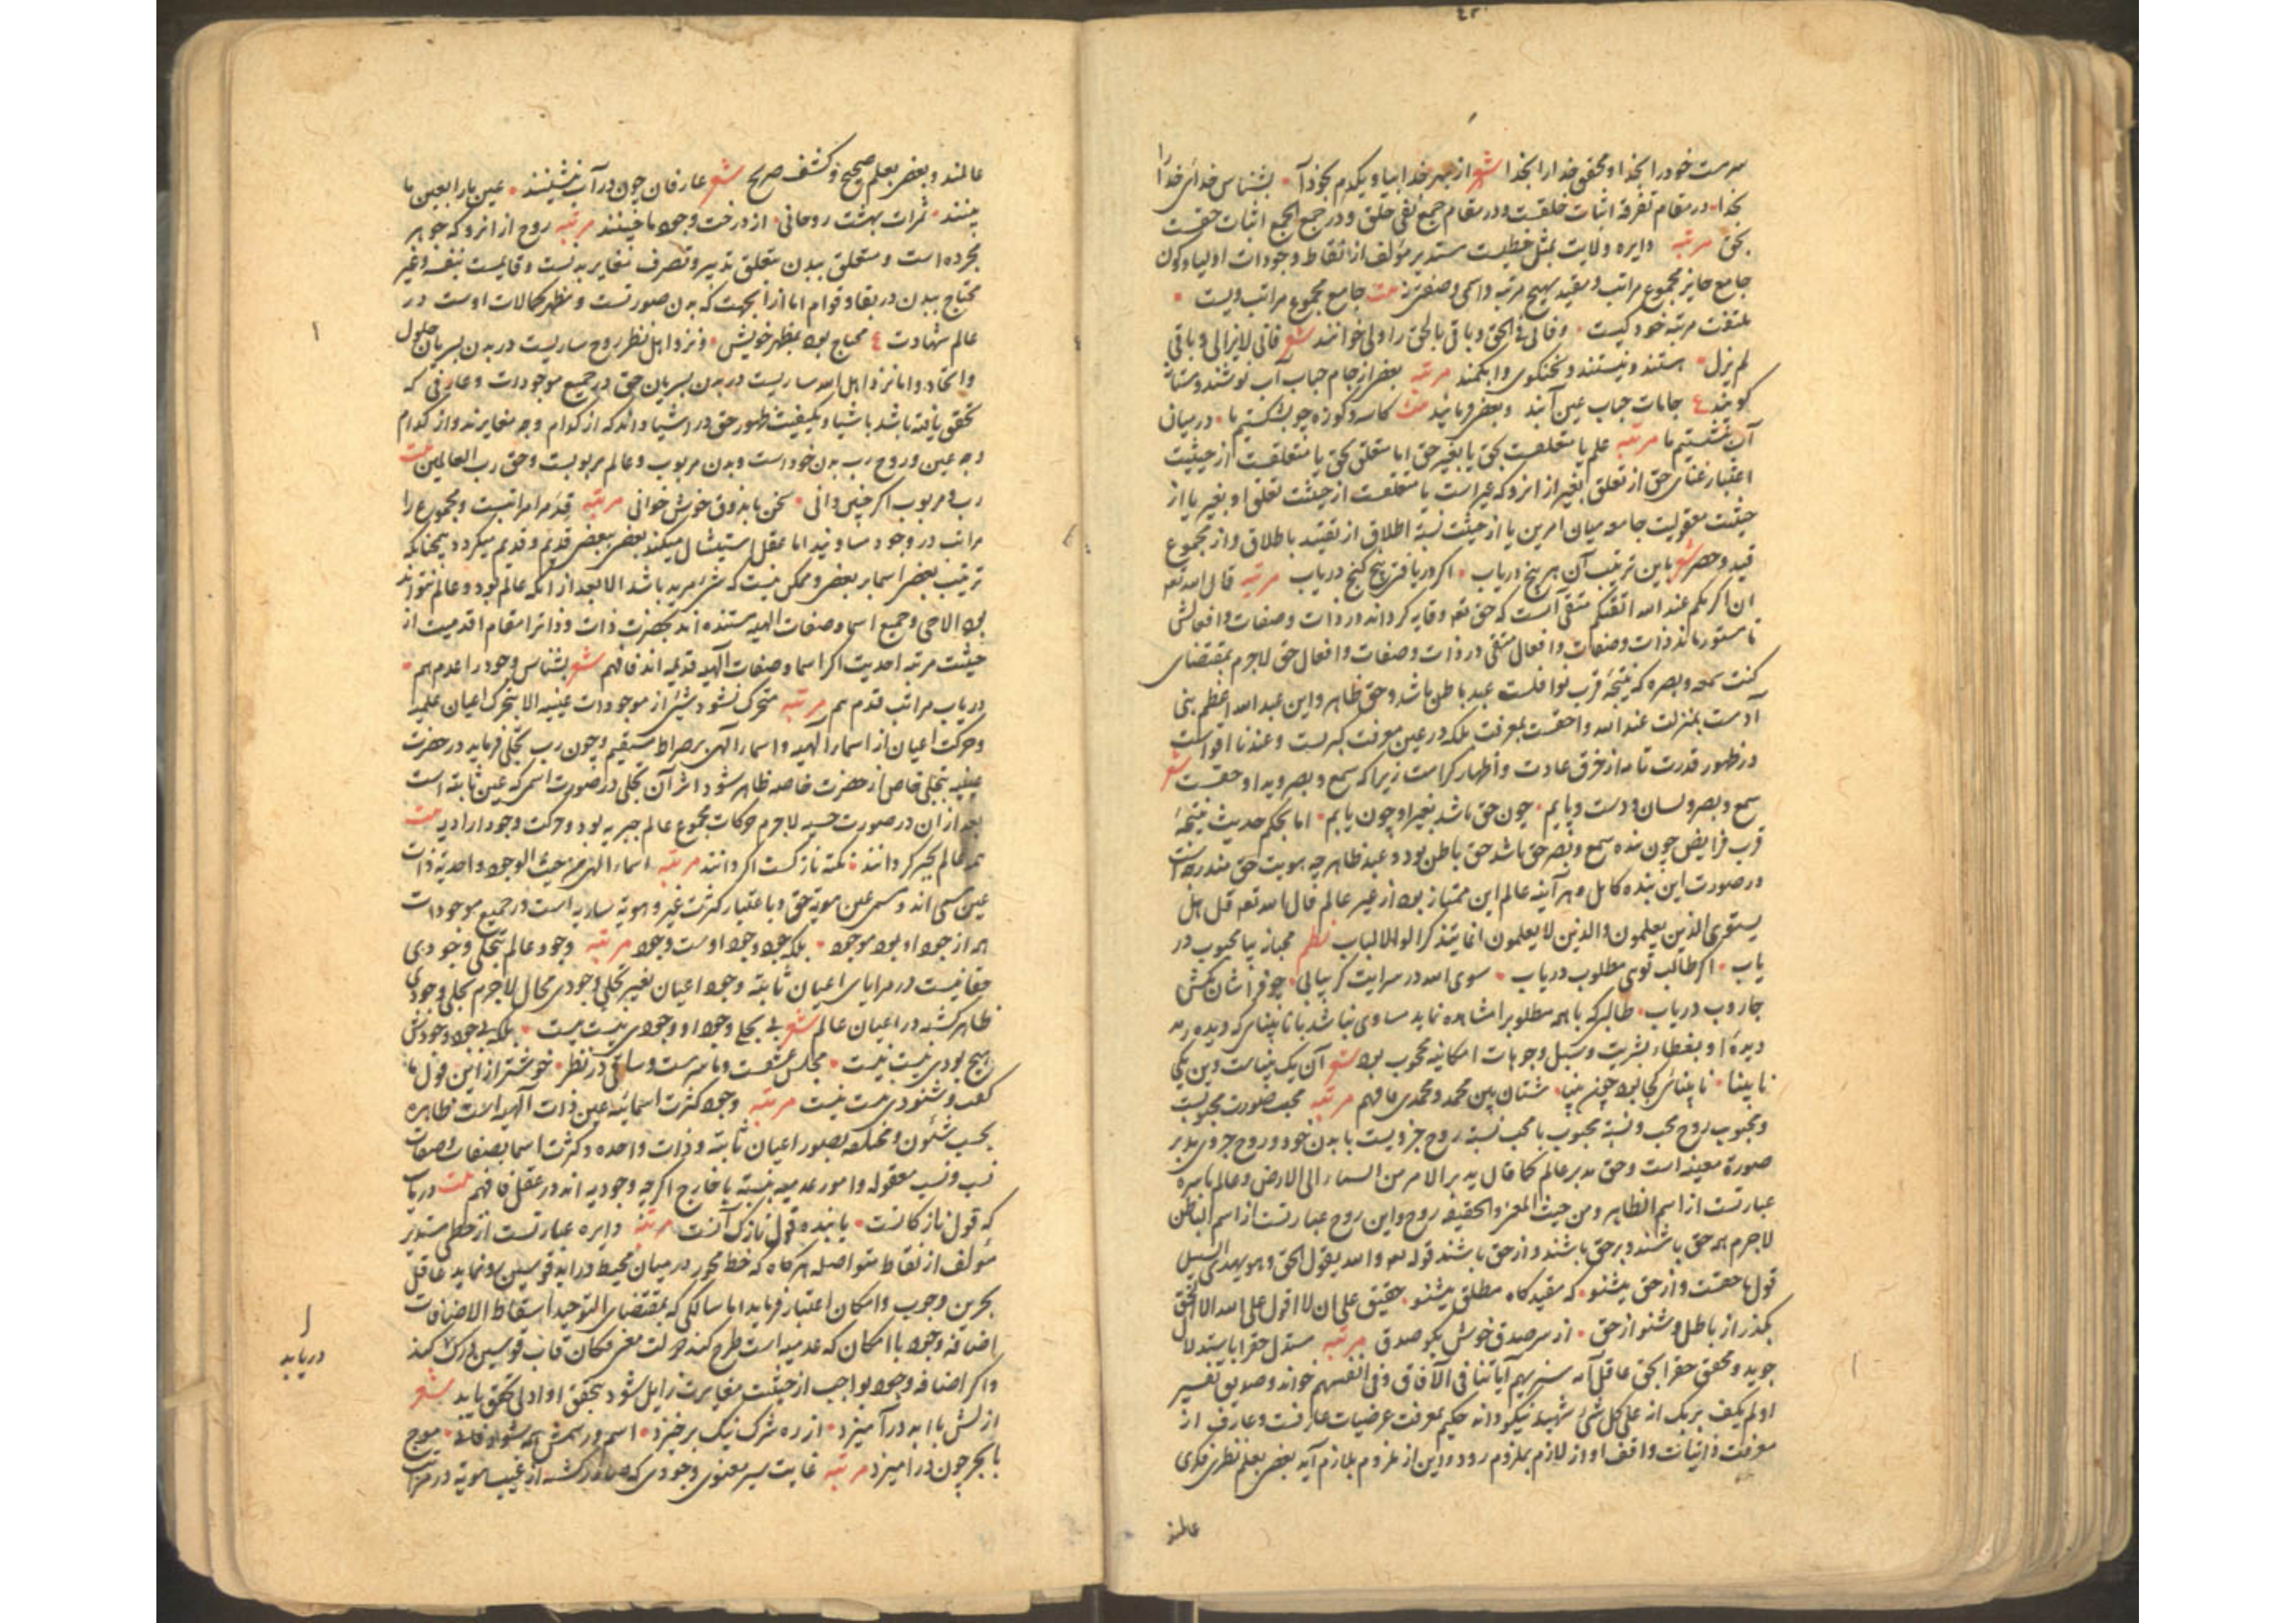 خود را بخدا و محقق خدا را بخدا شعر از بهر خدا بیا و یکدم بخود آ بشناس خدای خدا را
بخدا در مقام تفرقه اثبات خلقست و در مقام جمع نفی خلق و در جمع الجمع اثبات حقست
بحق مرتبه دایره ولایت بمثل خطیست مستدیر مؤلف از نقاط وجودات اولیا و کون
جامع حایز مجموع مراتب و مقید بهیچ مرتبه و اسمی و صفتی نه بیت جامع مجموع مراتب ویست
ملتفت مرتبه خود کیست و فانی فی الحق و باقی بالحق را ولی خوانند شعر فانی لایزالی و باقی
لم یزل هستند و نیستند و سخنکوی و ابکمند مرتبه بعضی از جام حباب آب نوشند و مستانه
کویند ع جامات حباب عین آبند و بعضی فرمایند بیت کاسه و کوزه چو بشکستیم ما در میان
آب نشستیم ما مرتبه علم یا متعلقست بحق یا بغیر حق اما متعلق بحق یا متعلقست از حیثیت
اعتبار غنای حق از تعلق بغیر از انرو که غیر است یا متعلقست از حیثیت تعلق او بغیر یا از
حیثیت معقولیت جامعه میان امرین یا از حیثیت نسبة اطلاق از تقیید باطلاق و از مجموع
قید و حصر شعر باین ترتیب آن هر پنج دریاب اکر دریافتی پنج کنج دریاب مرتبه قال الله تعه
ان اکرمکم عند الله اتقیکم متقی آنست که حق تعه وقایه کرداند در ذات و صفات و افعالش
تا مستور ماند ذات و صفات و افعال متقی در ذات و صفات و افعال حق لاجرم بمقتضای
کنت سمعه و بصره که نتیجهٔ قرب نوافلست عبد باطن باشد و حق ظاهر و این عبد الله اعظم بنی
آدمست بمنزلت عند الله و احقست بمعرفت بلکه در عین معرفت کبریست و عندنا اقواست
در ظهور قدرت تامه از خرق عادت و اظهار کرامت زیرا که سمع و بصر و ید او حقست شعر
سمع و بصر و لسان و دست و پایم چون حق باشد بغیر او چون یابم اما بحکم حدیث نتیجهٔ
قرب فرایض چون بنده سمع و بصر حق باشد حق باطن بود و عبد ظاهر چه هویت حق مندرجست
در صورت این بنده کامل و هر آینه عالم این ممتاز بود از غیر عالم قال الله تعه قل هل
یستوی الذین یعلمون والذین لا یعلمون انما یتذکر اولوا الالباب نظم محبانه بیا محبوب در
یاب اکر طالب توی مطلوب دریاب سوی الله در سرایت کر بیابی چو فراشان بکش
جاروب دریاب طالبی که با همه مطلوب را مشاهده نماید مساوی نباشد با نابینای که دیده رمد
دیدهٔ او بغطاء بشریت و سبل وجوهات امکانیه محجوب بود شعر آن یک بیناست وین یکی
نابینا نابینای کجا بود چون بینا شتان بین محمد و محمدی فافهم مرتبه محب صورت محبوبست
و محبوب روح محب و نسبة محبوب با محب نسبة روح جزویست با بدن خود و روح جزوی مدبر
صورة معینه است و حق مدبر عالم کما قال یدبر الامر من السماء الی الارض و عالم باسره
عبارتست از اسم الظاهر و من حیث المعنی و الحقیقه روح و این روح عبارتست از اسم الباطن
لاجرم همه حق باشند و بر حق باشند و از حق باشند قوله تعه والله یقول الحق و هو یهدی السبیل
قول ما حقست و از حق بشنو که مقید کاه مطلق بشنو حقیق علی ان لا اقول علی الله الا الحق
بکذر از باطل و شنو از حق از سر صدق خوش بکو صدق مرتبه مستدل حق را باستدلال
جوید و محقق حق را بحق عاقل آیه سنریهم آیاتنا فی الآفاق و فی انفسهم خواند و صدیق تفسیر
اولم یکف بربک انه علی کل شئ شهید نیکو داند حکیم بمعرفت عرضیات عارفست و عارف از
معرفت ذاتیات واقف او از لازم بملزوم رود و این از ملزوم بلازم آید بعضی بعلم نظری فکری
عالمند
عالمند و بعضی بعلم صحیح و کشف صریح شعر عارفان چون در آب بنشینند عین ما را بعین ما
بینند ثمرات بهشت روحانی از درخت وجود ما چینند مرتبه روح از انرو که جوهر
مجرده است و متعلق ببدن متعلق تدبیر و تصرف مغایر بدنست و قایمست بنفسه و غیر
محتاج ببدن در بقا و قوام اما از آن جهت که بدن صورتست و مظهر کمالات اوست در
عالم شهادت ع محتاج بود بمظهر خویش و نزد اهل نظر روح ساریست در بدن بسریان حلول
و اتحاد و اما نزد اهل الله ساریست در بدن بسریان حق در جمیع موجودات و عارفی که
تحقق یافته باشد باشیا و بکیفیت ظهور حق در اشیا داند که از کدام وجه مغایرند و از کدام
وجه عین و روح رب بدن خود است و بدن مربوب و عالم مربوبست و حق رب العالمین بیت
رب و مربوب اکر چنین دانی سخن ما بذوق خوش خوانی مرتبه قدم را مراتبست و مجموع را
مراتب در وجود مساویند اما عقل استیشال میکند بعضی ببعضی قدیم و قدیم میکردد همچنانکه
ترتیب بعضی اسما بر بعضی و ممکن نیست که شئ مرید باشد الا بعد از انکه عالم بود و عالم نتواند
بود الا حی و جمیع اسما و صفات الهیه مستنده اند بحضرت ذات و ذات را مقام اقدمیت از
حیثیت مرتبه احدیت اکر اسما و صفات الهیه قدیمه اند فافهم شعر بشناس وجود را عدم هم
دریاب مراتب قدم هم مرتبه متحرک نشود شئ از موجودات عینیه الا بتحرک اعیان علمیه
و حرکت اعیان از اسماء الهیه و اسماء الهی بر صراط مستقیم و چون رب تجلی فرماید در حضرت
عینیه بتجلی خاص از حضرت خاصه ظاهر شود اثر آن تجلی در صورت اسمی که عین ثابته است
بعد از آن در صورت حسیه لاجرم حرکات مجموع عالم جبریه بود و حرکت وجود ارادیه بیت
همه عالم بجبر کردانند نکته نازکست اکر دانند مرتبه اسماء الهی من حیث الوجود و احدیة ذات
عین مسمی اند و مسمی عین هویة حق و باعتبار کثرت غیر و هویة ساریه است در جمیع موجودات
همه از جود او بود موجود بلکه جود وجود اوست وجود مرتبه وجود عالم تجلی وجودی
حقانیست در مرایای اعیان ثابته وجود اعیان بغیر تجلی وجودی محال لاجرم تجلی وجودی
ظاهر کشته در اعیان عالم شعر بی تجلی وجود او وجودی نیست نیست بلکه بی جود وجودش
هیچ بودی نیست نیست مجلس عشقست و ما سرمست و ساقی در نظر خوشتر از این قول ما
کفت و شنودی نیست نیست مرتبه وجود کثرت اسمائیه عین ذات الهیه است ظاهره
بحسب شئون مختلفه بصور اعیان ثابته و ذات واحده و کثرت اسما بصفات و صفات
نسب و نسب معقوله و امور عدمیه بنسبة با خارج اکرچه وجودیه اند در عقل فافهم بیت دریاب
که قول نازکانست یابنده قول نازک آنست مرتبه دایره عبارتست از خطی مستدیر
مؤلف از نقاط متواصله هرکاه که خط محور در میان محیط دراید قوسین رو نماید عاقل
بحرین وجوب و امکان اعتبار فرماید اما سالکی که بمقتضای التوحید اسقاط الاضافات
اضافه وجود با امکان که عدمیه است طرح کند دولت معنی فکان قاب قوسین ادراک کند
و اکر اضافه وجود بواجب از حیثیت مغایرت زایل شود بتحقق او ادنی تحقق یابد شعر
ازلش با ابد در آمیزد از ره شرک نیک برخیزد اسم و رسمش همه شود فانی موج
با بحر چون درامیزد مرتبه غایت سیر معنوی وجودی که صادر کشته از غیب هویة در مراتب
دریابد